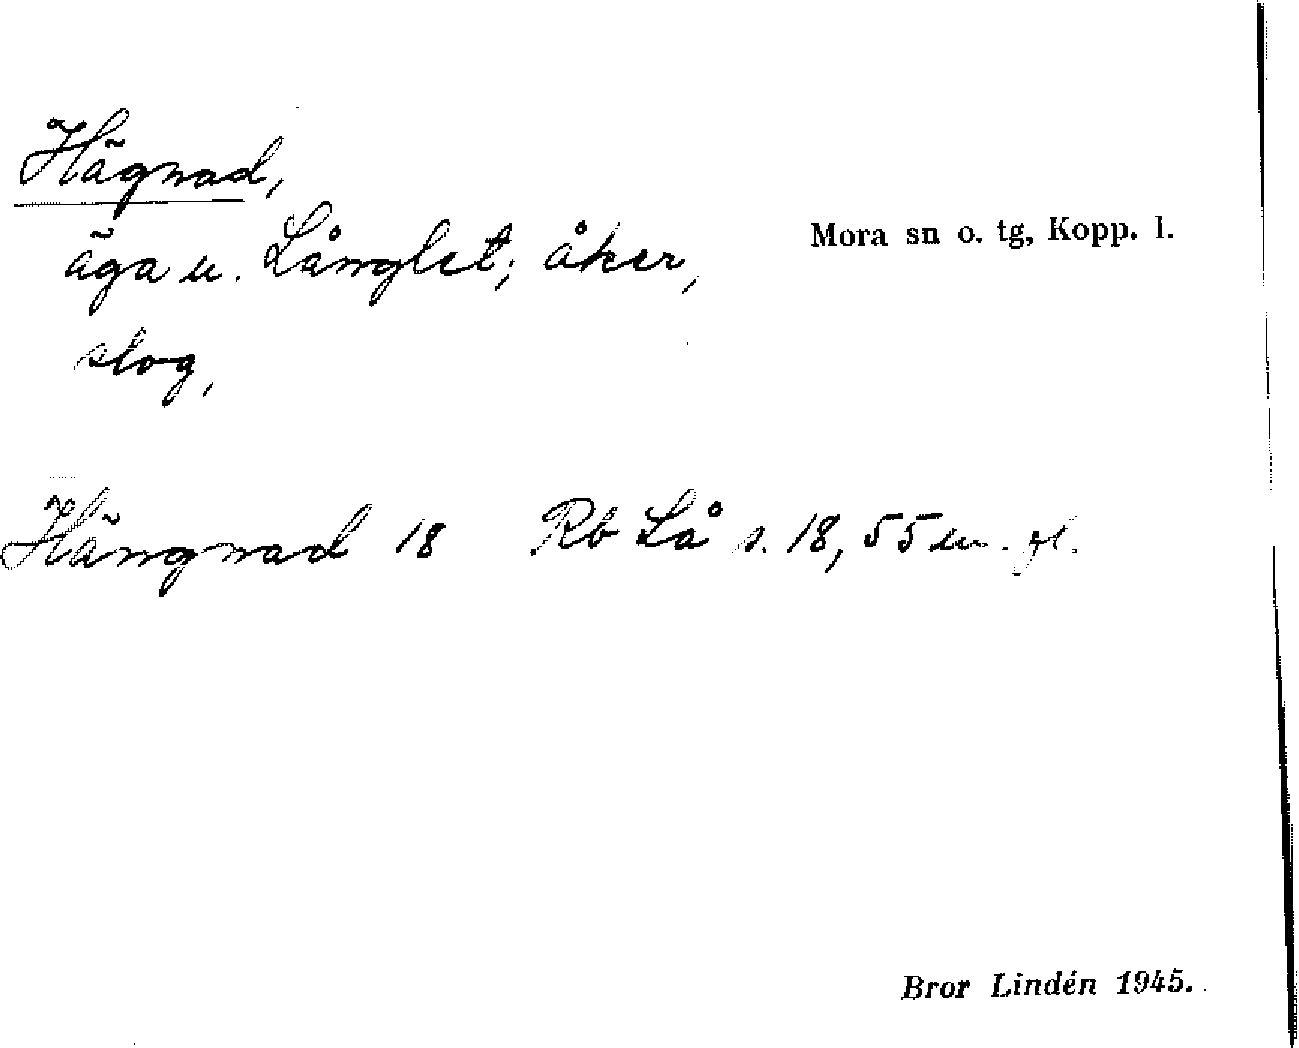 Hägnad,
äga u. Långlet; åker,
Mora sn o. tg, Kopp. l.
slog,
Hängnad 18 Rb Lå s. 18, 55 m. fl.
Bror Lindén 1945.